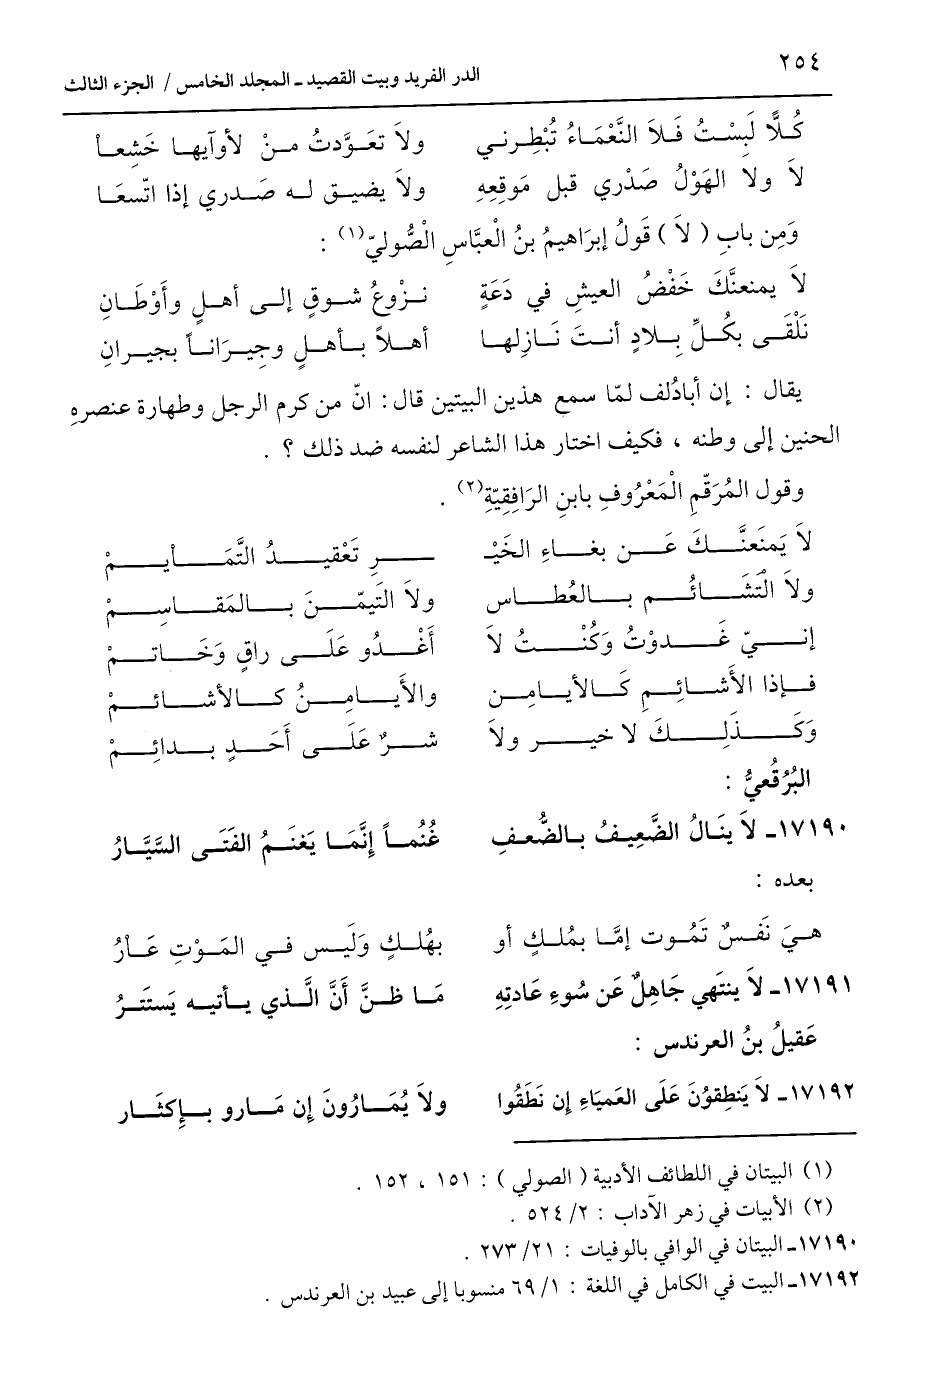 ٢٥٤
الدر الفريد وبيت القصيد ـ المجلد الخامس / الجزء الثالث
كُلاًّ لَبِسْتُ فَلاَ النَّعْمَاءُ تُبْطِرني ولاَ تعَوَّدتُ منْ لأوآيها خَشِعاً
لاَ ولا الهَوْلُ صَدْري قبل مَوقِعِهِ ولاَ يضيق له صَدري إذا اتّسعَا
وَمِن بابِ ( لاَ ) قَولُ إبرَاهيمُ بنُ الْعبَّاسِ الْصُّوليّ(١) :
لاَ يمنعنَّكَ خَفْضُ العيشِ في دَعَةٍ نزْوعُ شوقٍ إلى أهلٍ وأَوْطَانِ
نَلْقَى بكُلِّ بِلادٍ أنتَ نَازِلها أهلاً بأهلٍ وجيرَاناً بجيرانِ
يقال : إن أبادُلف لمّا سمع هذين البيتين قال : انّ من كرم الرجل وطهارة عنصرهِ
الحنين إلى وطنه ، فكيف اختار هذا الشاعر لنفسه ضد ذلك ؟ .
وقول المُرَقّمِ الْمَعْرُوفِ بابنِ الرَافِقِيّةِ(٢) .
لاَ يَمنَعنَّكَ عَن بغاءِ الخَيْـ ـرِ تَعْقِيدُ التَّمَأيِمْ
ولاَ الْتَشَائُم بالعُطاس ولاَ التَيمّنَ بالمَقَاسِمْ
إنيّ غَدوْتُ وَكُنْتُ لاَ أَغْدُو عَلَى راقٍ وَخَاتمْ
فإذا الأَشائِم كَالأيامِن والأَيامِنُ كالأشائمْ
وَكَذلِكَ لا خير ولاَ شرٌ عَلَى أَحَدٍ بدائِمْ
البُرُقُعيُّ :
١٧١٩٠ـ لاَ ينَالُ الضَّعِيفُ بالضُّعفِ غُنُماً إنَّمَا يَغنَمُ الفَتَى السَّيَّارُ
بعده :
هيَ نَفَسٌ تَمُوت إمَّا بمُلكٍ أو بهُلكٍ وَلَيس في المَوْتِ عَارُ
١٧١٩١ـ لاَ ينتَهي جَاهِلٌ عَن سُوءِ عَادتِهِ مَا ظنَّ أَنَّ الَّذي يأتيه يَستَترُ
عَقيلُ بنُ العرندس :
١٧١٩٢ـ لاَ يَنطِقوُنَ عَلَى العَميَاءِ إن نَطَقُوا ولاَ يُمَارُونَ إن مَارو بإكثَار
(١) البيتان في اللطائف الأدبية ( الصولي ) : ١٥١ ، ١٥٢ .
(٢) الأبيات في زهر الآداب : ٢/ ٥٢٤ .
١٧١٩٠ـ البيتان في الوافي بالوفيات : ٢١/ ٢٧٣ .
١٧١٩٢ـ البيت في الكامل في اللغة : ١/ ٦٩ منسوبا إلى عبيد بن العرندس .